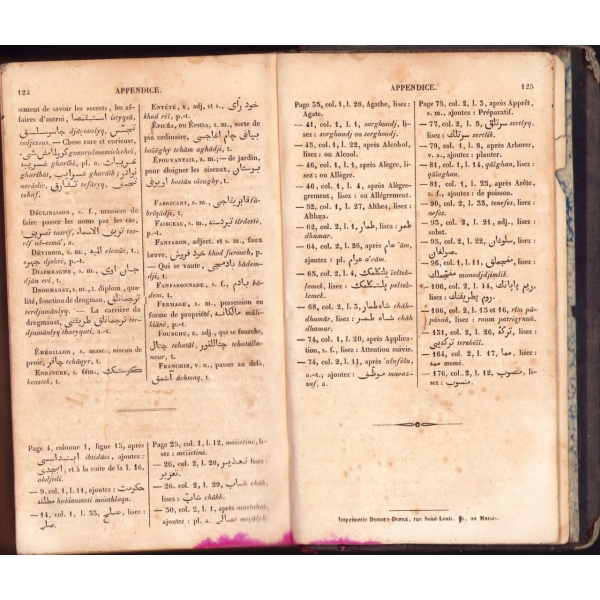 124 APPENDICE.
sement de savoir les secrets, les af-
faires d'autrui, استقصا istyqsâ,
تجسّس djâçouslyq, جاسوسلق
tedjessus. — Chose rare et curieuse,
غريبه gharîbè, pl. a. غريبات
gharîbât, غرايب gharâïb; نوادر
nevâdir, تحف
tuhaf.
DÉCLINAISON, s. f., manière de
faire passer les noms par les cas,
تصريف tasrîf, تصريف الاسماء tas-
rîf ul-esmâ, a.
DÉVIDOIR, s. m., المه elémè, t.;
چهره djehrè, p.-t.
DIAPHRAGME, s. m., جان اوى
djân evi, t.
DROGMANAT, s. m., t. diplom., qua-
lité, fonction de drogman, ترجمانلق
terdjumânlyq. — La carrière du
drogmanat, ترجمانلق طريقتى ter-
djumânlyq tharyqati, a.-t.
ÉMÉRILLON, s. masc., oiseau de
proie, چاقر tchâqyr, t.
ENRAYURE, s. fém., كوستك
keustek, t.
ENTÊTÉ, E, adj. et s., خود راى
khod reï, p.-t.
ÉPICÉA, ou ÉPICIA, s. m., sorte de
pin ordinaire, يباغى چام اغاجى
ÉPOUVANTAIL, s. m.; — de jardin,
pour éloigner les oiseaux, بوستان
اويوغى bostân oïoughy, t.
FABRICANT, s. m., فابريقاجى fâ-
brîqâdji, t.
FAISCEAU, s. m., تيردسته tîrdestè,
p.-t.
FANFARON, adject. et s. m., faux
brave, خود فروش khod furouch, p.
— Qui se vante, بادمجى bâdem-
dji, t.
FANFARONNADE, s. f., بادم bâ-
dem, t.
FERMAGE, s. m., possession en
forme de propriété, مالكانه mâli-
kiânè, p.-t.
FOURCHU, E, adj., qui se fourche,
چتال tchatal, چتاللنور tchatâlla-
neur, t.
FRANCHIR, v. n., passer au delà,
آشمق âchmaq, t.
Page 4, colonne 1, ligne 15, après
ابتداسى ibtidâci, ajoutez:
ابجدى; et à la suite de la l. 16,
abdjedi.
— 9, col. 1, l. 11, ajoutez: حكومت
مطلقه hukioumeti mouthlaqa.
— 14, col. 1, l. 33, صلح, lisez:
صلى.
Page 25, col. 1, l. 12, meïicetinè, li-
sez: meïicetinè.
— 26, col. 2, l. 20, تعذير, lisez:
تعزير.
— 26, col. 2, l. 29, شاب châh,
lisez: شابّ châbb.
— 30, col. 2, l. 1, après
ajoutez: pl. a. مصالح
APPENDICE. 125
Page 38, col. 1, l. 28, Agathe, lisez:
Agate.
— 41, col. 1, l. 1, sorghoudj, li-
sez: sorghoudj ou serghoudj.
— 45, col. 1, l. 22, après Alcohol,
lisez: ou Alcool.
— 46, col. 1, l. 1, après Alègre, li-
sez: ou Allègre.
— 46, col. 1, l. 4, après Alègre-
grement, lisez: ou Allégrement.
— 52, col. 1, l. 27, Althea, lisez:
Althæa.
— 62, col. 2, l. 1, طمار, lisez: طمر
dhamar.
— 64, col. 2, l. 26, après عام 'âm,
ajoutez: pl. عوام a'vâm.
— 65, col. 2, l. 4, يلتكمك ïeltek-
lemek, lisez: پلتكلمك peltek-
lemek.
— 68, col. 2, l. 3, شاه طمار châh-
dhamâr, lisez: شاه طمر châh
dhamar.
— 74, col. 1, l. 20, après Applica-
tion, s. f., lisez: Attention suivie.
— 74, col. 2, l. 11, après
a.-t.; ajoutez: موظف muvaz-
zaf, a.
Page 75, col. 2, l. 3, après Apprêt,
s. m., ajoutez: Préparatif.
— 77, col. 2, l. 8, سرتلق sertlyq,
lisez: سرتلك sertlik.
— 79, col. 1, l. 8, après Arborer,
v. a., ajoutez: planter.
— 81, col. 1, l. 14, qâïghan, lisez:
qâïoghan.
— 81, col. 1, l. 23, après Arête,
s. f., ajoutez: de poisson.
— 90, col. 2, l. 33, tenefes, lisez:
nefes.
— 93, col. 2, l. 21, adj., lisez:
subst.
— 95, col. 2, l. 22, سلوغان, lisez:
صولغان.
— 96, col. 1, l. 11, مفجملق, lisez:
منجملك munedjdjimlik.
— 106, col. 2, l. 14, ريم پاپانك, lisez:
روم پطريقنك.
— 106, col. 2, l. 15 et 16, rîm pâ-
pânuñ, lisez: roum patriqynuñ.
— 151, col. 1, l. 26, توكه, lisez:
تركه‌يى terekèïi.
— 164, col. 2, l. 17, مما, lisez:
ممه memè.
— 176, col. 2, l. 12, منصوب, li-
sez: منسوب.
Imprimerie DONDEY-DUPRÉ, rue Saint-Louis, au Marais.